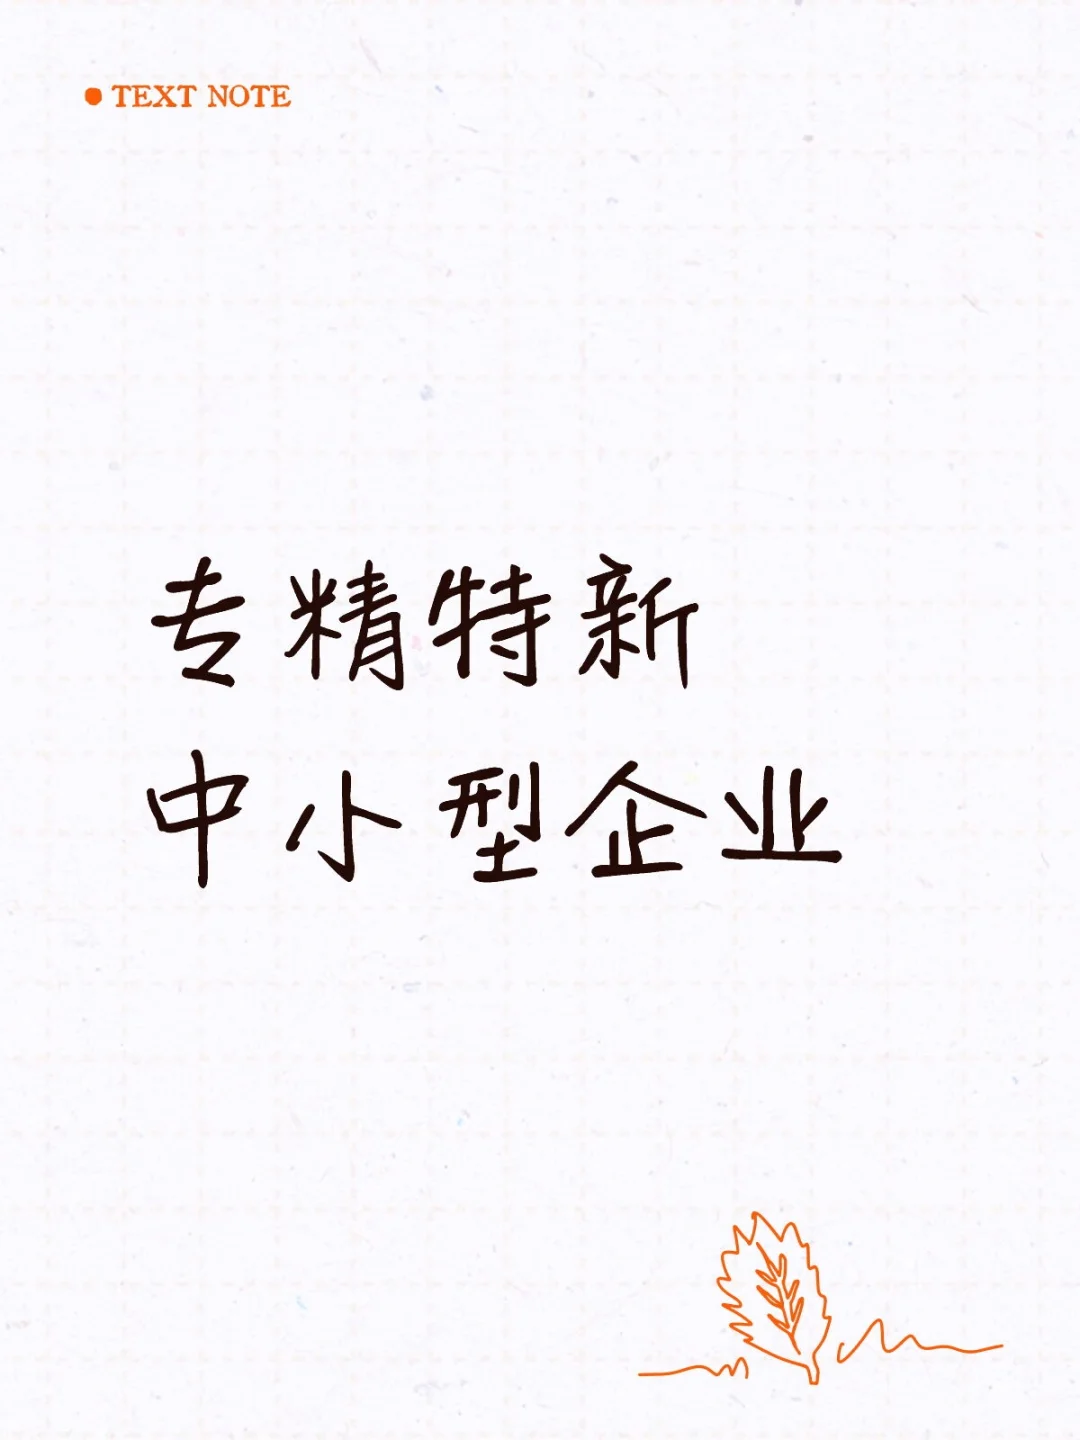 TEXT NOTE
专精特新
中小型企业